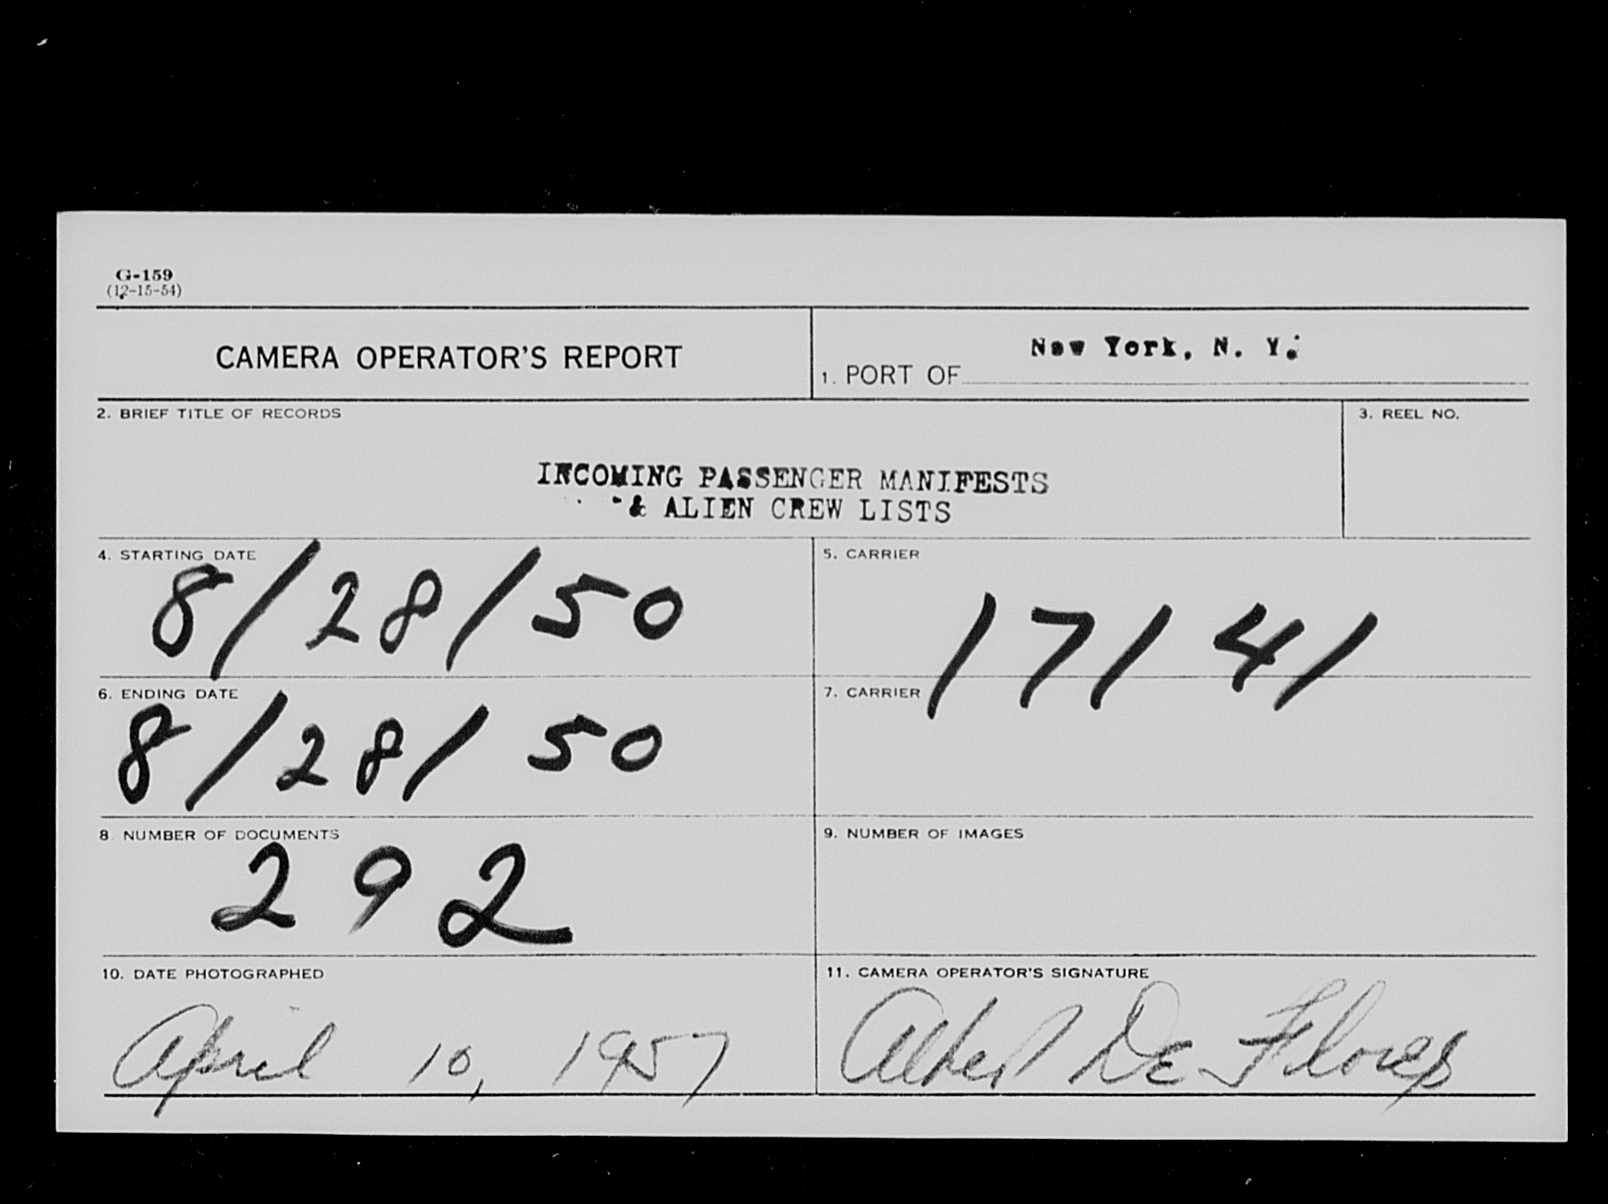 G-159
(12-15-54)
CAMERA OPERATOR'S REPORT
1. PORT OF New York, N. Y.
2. BRIEF TITLE OF RECORDS
3. REEL NO.
INCOMING PASSENGER MANIFESTS
& ALIEN CREW LISTS
4. STARTING DATE
8/28/50
5. CARRIER
17141
6. ENDING DATE
8/28/50
7. CARRIER
8. NUMBER OF DOCUMENTS
292
9. NUMBER OF IMAGES
10. DATE PHOTOGRAPHED
April 10, 1957
11. CAMERA OPERATOR'S SIGNATURE
Albert De Flores